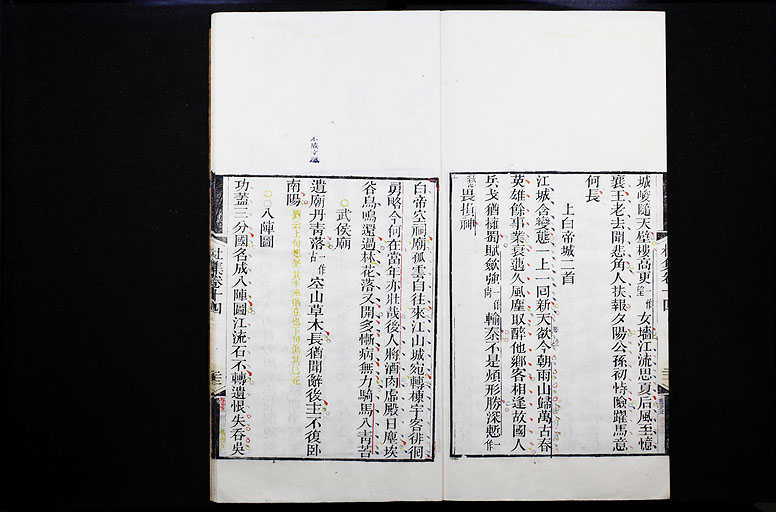 城峻隨天壁樓高更一作望女墻江流思夏后風至憶
襄王老去聞悲角人扶報夕陽公孫初恃險躍馬意
何長
上白帝城二首
江城含變態一上一回新天欲今朝雨山歸萬古春
英雄餘事業衰邁久風塵取醉他鄉客相逢故國人
兵戈猶擁蜀賦斂強一作尚輸秦不是煩形勝深慙一作
愁畏損神
白帝空祠廟孤雲自往來江山城宛轉棟宇客徘徊
勇略今何在當年亦壯哉後人將酒肉虛殿日塵埃
谷鳥鳴還過林花落又開多慚病無力騎馬入青苔
武侯廟
遺廟丹青落一作古空山草木長猶聞辭後主不復臥
南陽
八陣圖
功蓋三分國名成八陣圖江流石不轉遺恨失吞吳
杜集卷十四